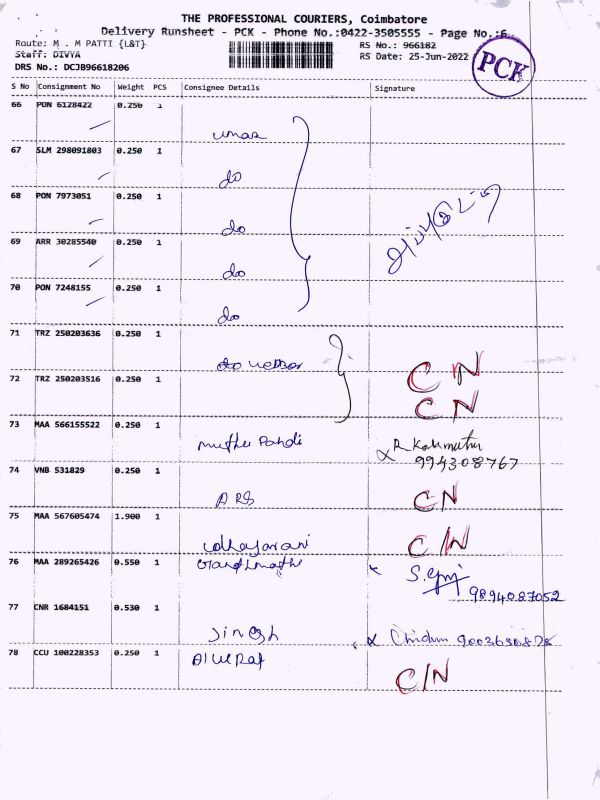 THE PROFESSIONAL COURIERS, Coimbatore
Delivery Runsheet - PCK - Phone No.:0422-3505555 - Page No.:6
Route: M . M PATTI {L&T} RS No.: 966182
Staff: DIVYA RS Date: 25-Jun-2022
DRS No.: DCJB96618206
PCK
S No Consignment No Weight PCS Consignee Details Signature
66 PON 6128422 0.250 1
umar
67 SLM 298091803 0.250 1
do
68 PON 7973051 0.250 1
do
69 ARR 30285540 0.250 1
do
70 PON 7248155 0.250 1
do
71 TRZ 250203636 0.250 1
do CN
72 TRZ 250203516 0.250 1
CN
73 MAA 566155522 0.250 1
Muthu Pandi R Kalimuthu
994308767
74 VNB 531829 0.250 1
ARS CN
75 MAA 567605474 1.900 1
udhayarani C/N
76 MAA 289265426 0.550 1
9894087052
77 CNR 1684151 0.530 1
Jinesh
78 CCU 100228353 0.250 1
C/N